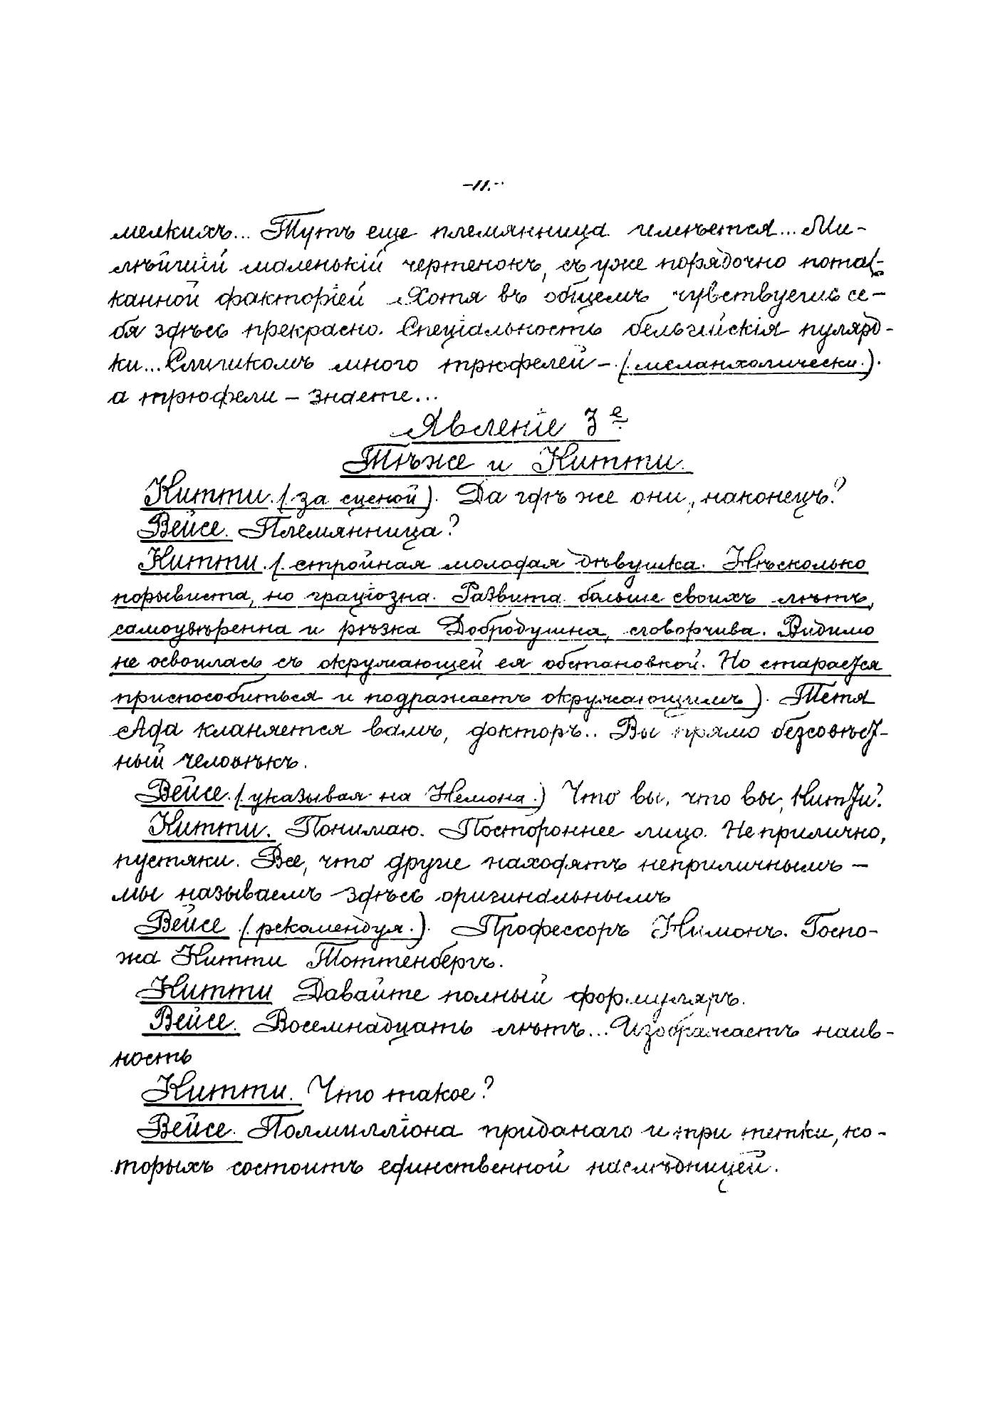 -11.-
мелкихъ... Тутъ еще племянница имѣется... Ми-
лѣйшій маленькій чертенокъ, съ уже порядочно потас-
канной факторіей. Хотя въ общемъ чувствуешь се-
бя здѣсь прекрасно. Спеціальность бельгійскія пуляpд-
ки... Слишкомъ много трюфелей - (меланхолически).
а трюфели - знаете...
Явленіе 3е
Тѣже и Китти.
Китти. (за сценой). Да гдѣ же они, наконецъ?
Вейсе. Племянница?
Китти. (стройная молодая дѣвушка. Нѣсколько
порывиста, но граціозна. Развита больше своихъ лѣтъ,
самоувѣренна и рѣзка. Добродушна, сговорчива. Видимо
не освоилась съ окружающей ея обстановкой. Но старается
приспособиться и подражаетъ окружающимъ). Тетя
Ада кланяется вамъ, докторъ.. Вы прямо безсовѣст-
ный человѣкъ.
Вейсе. (указывая на Немона.) Что вы, что вы, Китти?
Китти. Понимаю. Постороннее лицо. Неприлично,
пустяки. Все, что другіе находятъ неприличнымъ -
мы называемъ здѣсь оригинальнымъ
Вейсе (рекомендуя.). Профессоръ Нимонъ. Госпо-
жа Китти Тоттенбергъ.
Китти Давайте полный формуляръ.
Вейсе. Восемнадцать лѣтъ... Изображаетъ наив-
ность
Китти. Что такое?
Вейсе. Полмилліона приданаго и три тетки, ко-
торыхъ состоитъ единственной наслѣдницей.